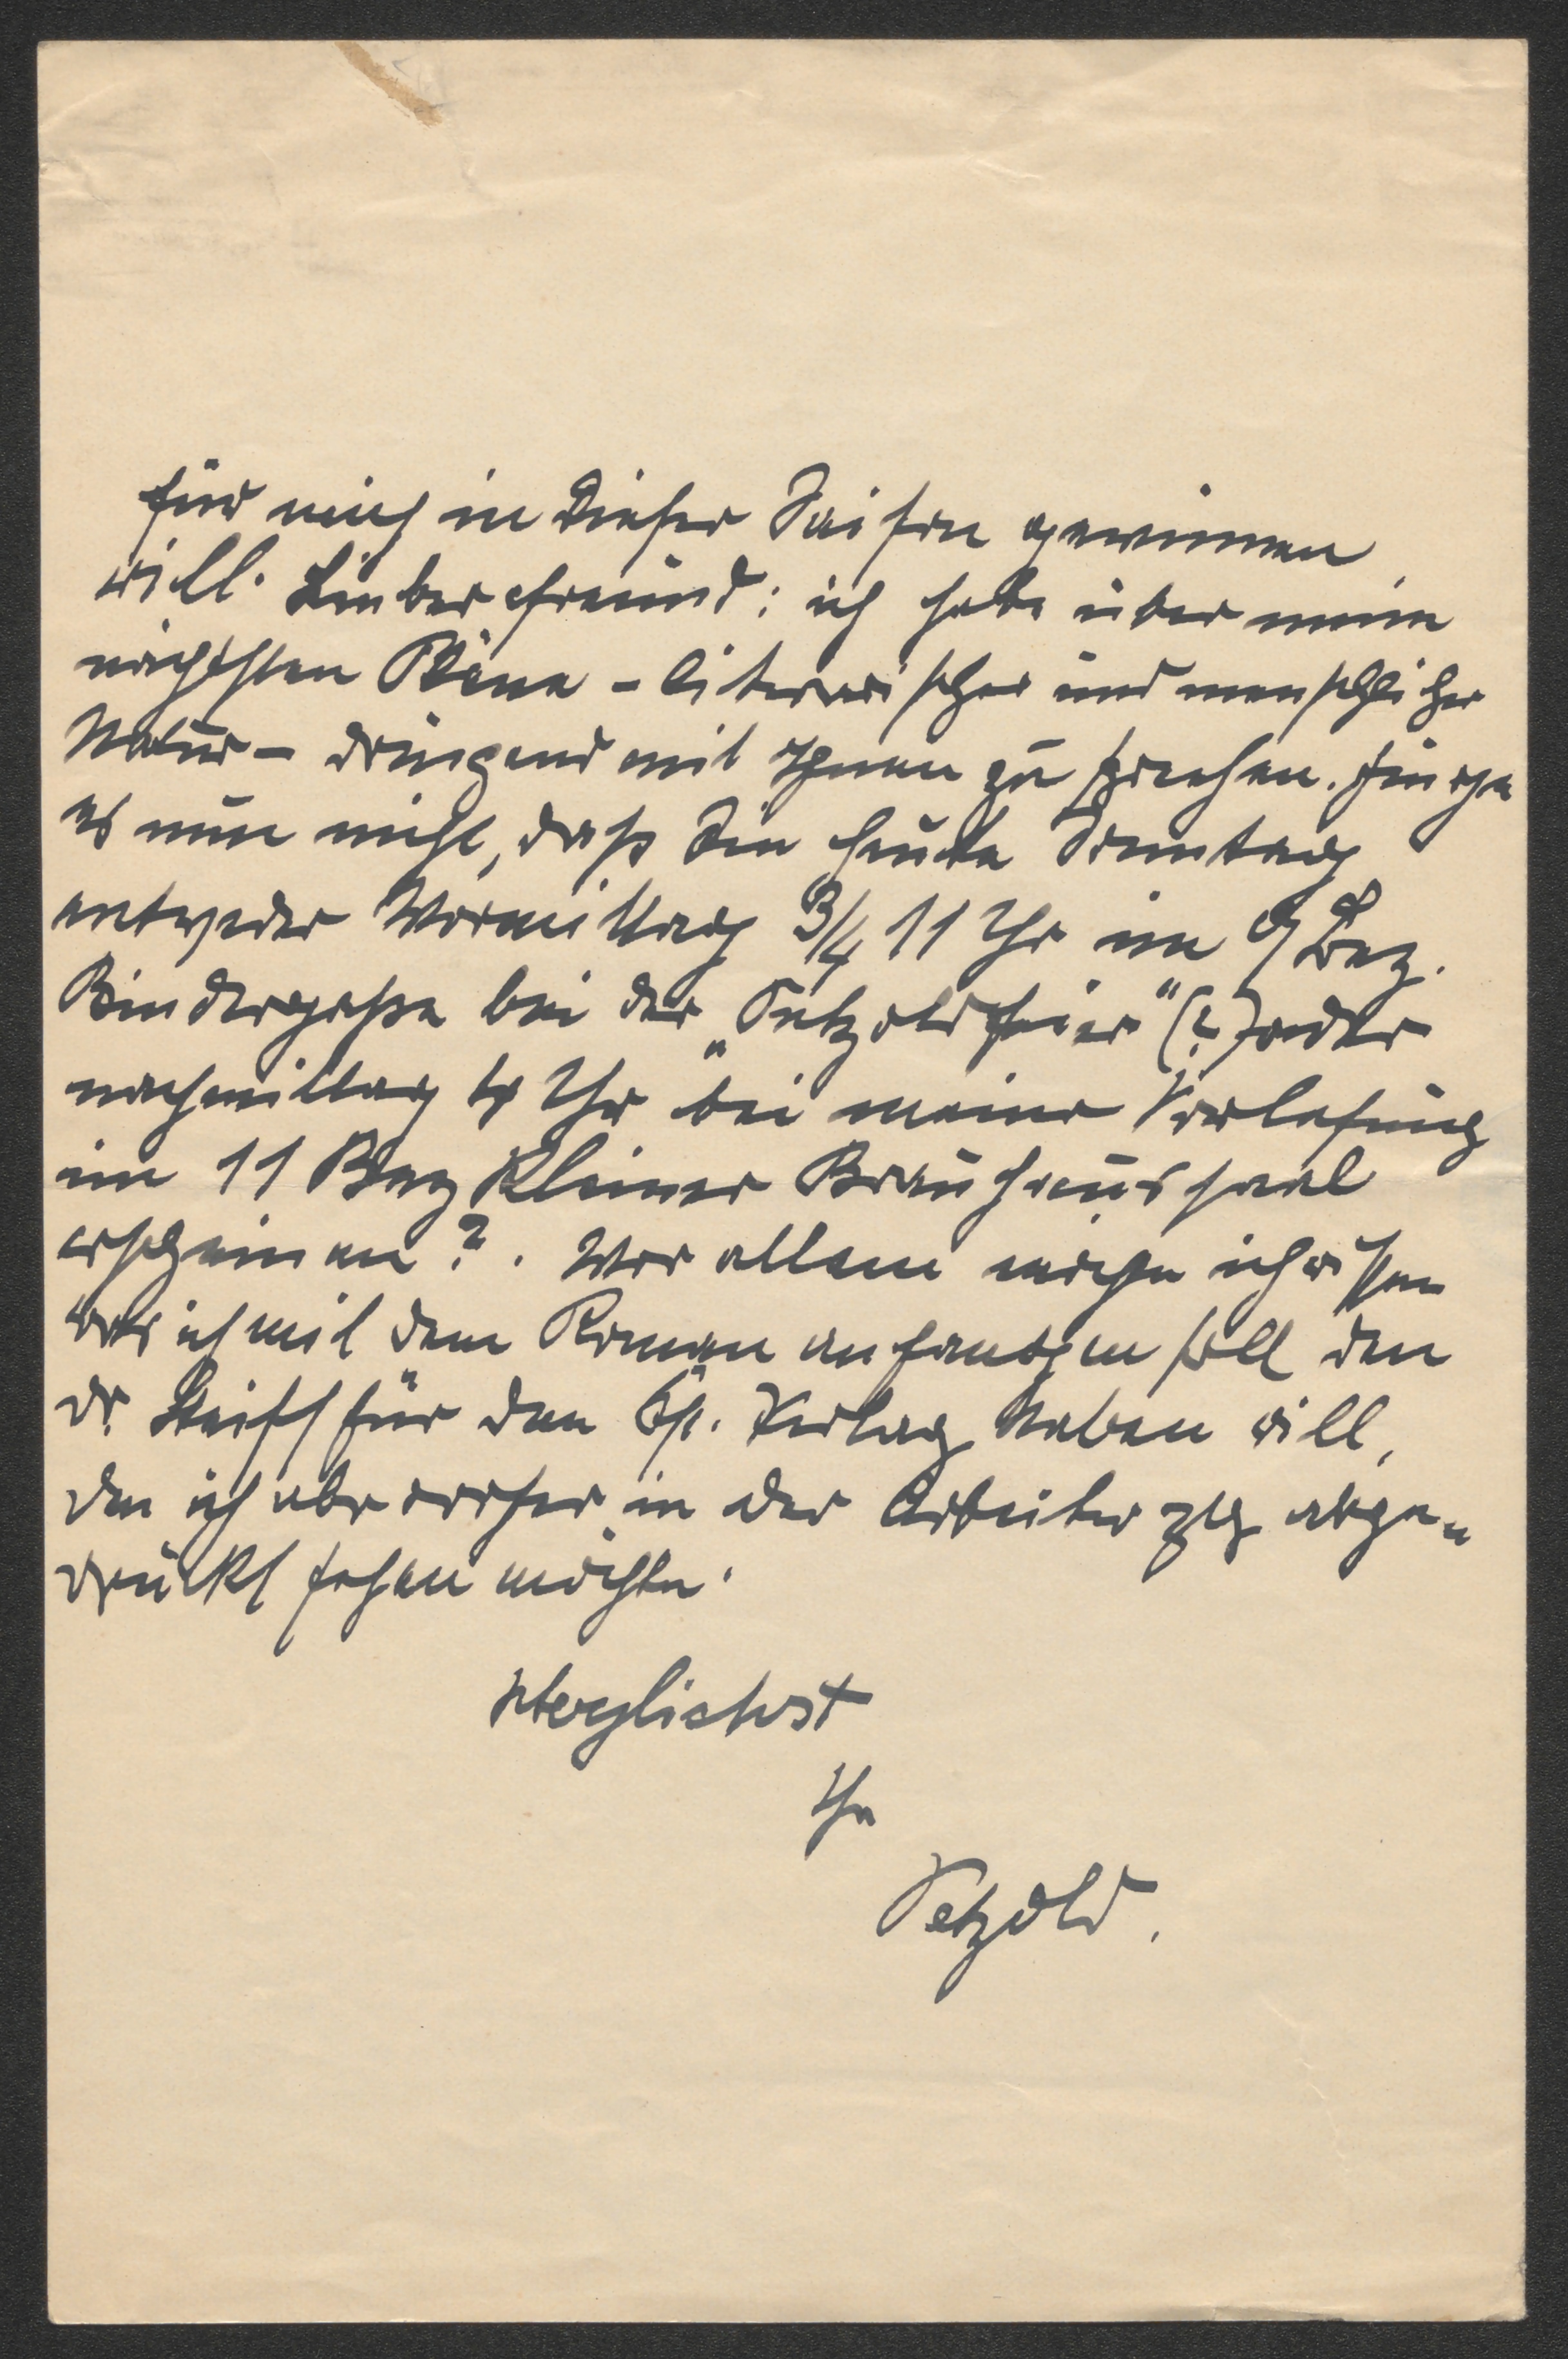 für mich in dieser Saison gewinnen
will. Lieber Freund: ich habe über meine
nächsten Pläne – literarischer und menschlicher
Natur – dringend mit Ihnen zu sprechen. Ginge
es nun nicht, daß Sie heute Sonntag
entweder Vormittag 3/4 11 Uhr im 9 Bez.
Bindergasse bei der „Petzoldfeier“ (?) oder
nachmittag 4 Uhr bei meiner Vorlesung
im 11 Bez Kleiner Brauhaussaal
erscheinen?. Vor allem möchte ich wissen
was ich mit dem Roman anfangen soll den
Dr für den Verlag haben will,
den ich aber vorher in der Arbeiter ztg abge-
druckt sehen möchte.
Herzlichst
Ihr
Petzold.